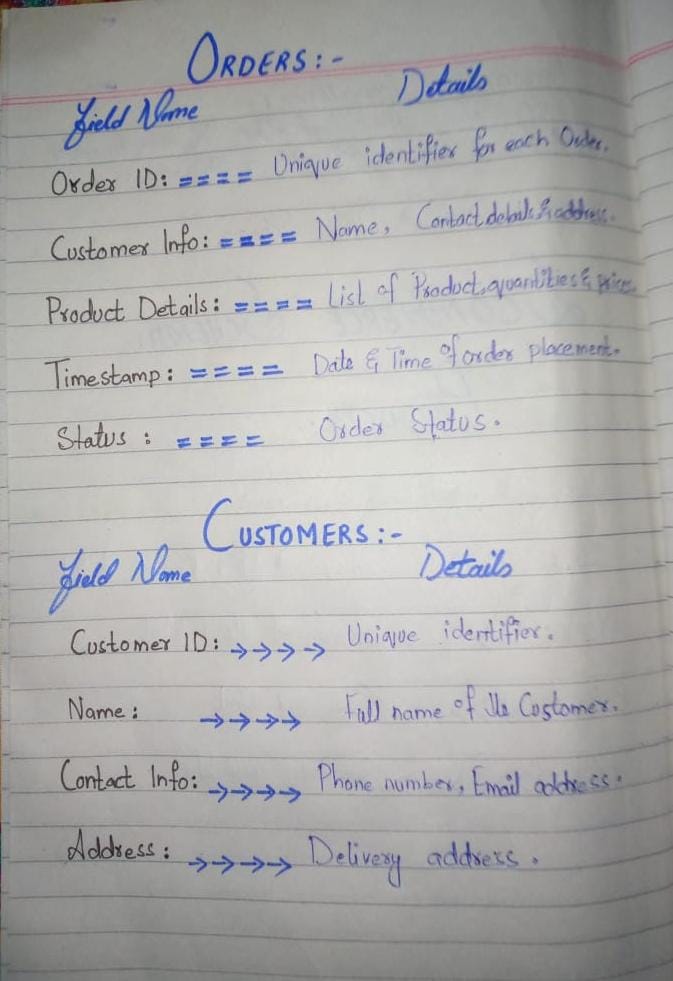 ORDERS:-
Field Name Details
Order ID: ==== Unique identifier for each Order.
Customer Info: ==== Name, Contact details & address.
Product Details: ==== List of Product, quantities & prices
Timestamp: ==== Date & Time of order placement.
Status : ==== Order Status.
CUSTOMERS:-
Field Name Details
Customer ID: →→→→ Unique identifier.
Name: →→→→ Full name of the Customer.
Contact Info: →→→→ Phone number, Email address.
Address: →→→→ Delivery address.